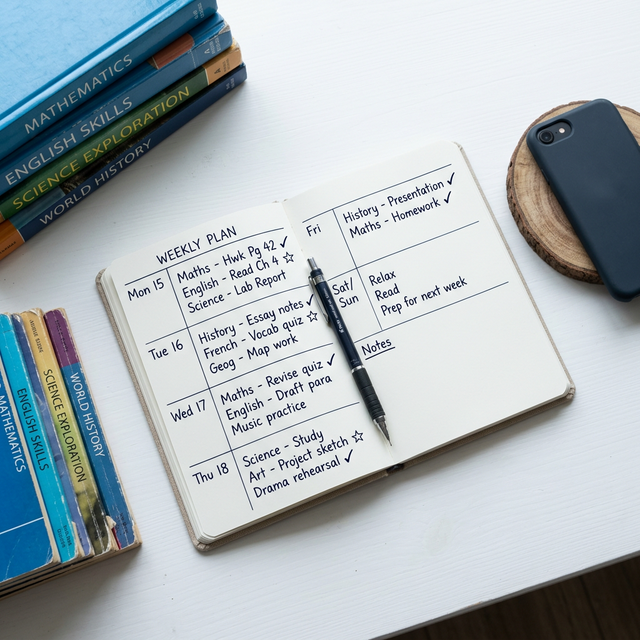 MATHEMATICS
ENGLISH SKILLS
SCIENCE EXPLORATION
WORLD HISTORY
MATHEMATICS
ENGLISH SKILLS
SCIENCE EXPLORATION
WORLD HISTORY
WEEKLY PLAN
Mon 15
Maths - Hwk Pg 42 ✓
English - Read Ch 4 ☆
Science - Lab Report
Tue 16
History - Essay notes ✓
French - Vocab quiz ☆
Geog - Map work
Wed 17
Maths - Revise quiz ✓
English - Draft para
Music practice
Thu 18
Science - Study ☆
Art - Project sketch ☆
Drama rehearsal ✓
Fri
History - Presentation ✓
Maths - Homework ✓
Sat/
Sun
Relax
Read
Prep for next week
Notes